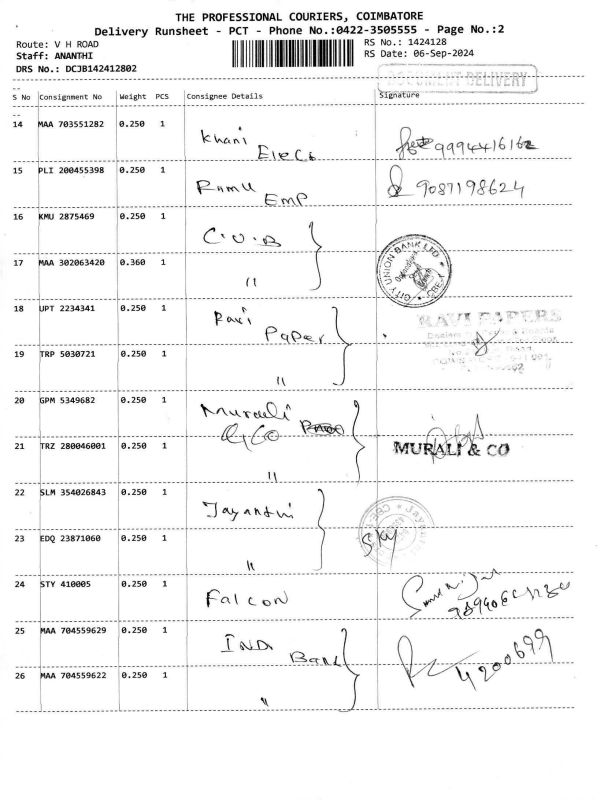 THE PROFESSIONAL COURIERS, COIMBATORE
Delivery Runsheet - PCT - Phone No.:0422-3505555 - Page No.:2
Route: V H ROAD
RS No.: 1424128
Staff: ANANTHI
RS Date: 06-Sep-2024
DRS No.: DCJB142412802
DOCUMENT DELIVERY
S No Consignment No Weight PCS Consignee Details Signature
14 MAA 703551282 0.250 1 Khani Elecs 9994416162
15 PLI 200455398 0.250 1 Ramu Emp 9087198624
16 KMU 2875469 0.250 1 C.U.B
CITY UNION BANK LTD CBE
17 MAA 302063420 0.360 1 "
18 UPT 2234341 0.250 1 Ravi Paper
RAVI PAPERS
19 TRP 5030721 0.250 1 "
20 GPM 5349682 0.250 1 Murali & Co
21 TRZ 280046001 0.250 1 "
MURALI & CO
22 SLM 354026843 0.250 1 Jayanthi
23 EDQ 23871060 0.250 1 " Sky
24 STY 410005 0.250 1 Falcon
25 MAA 704559629 0.250 1 IND Bank
4200699
26 MAA 704559622 0.250 1 "